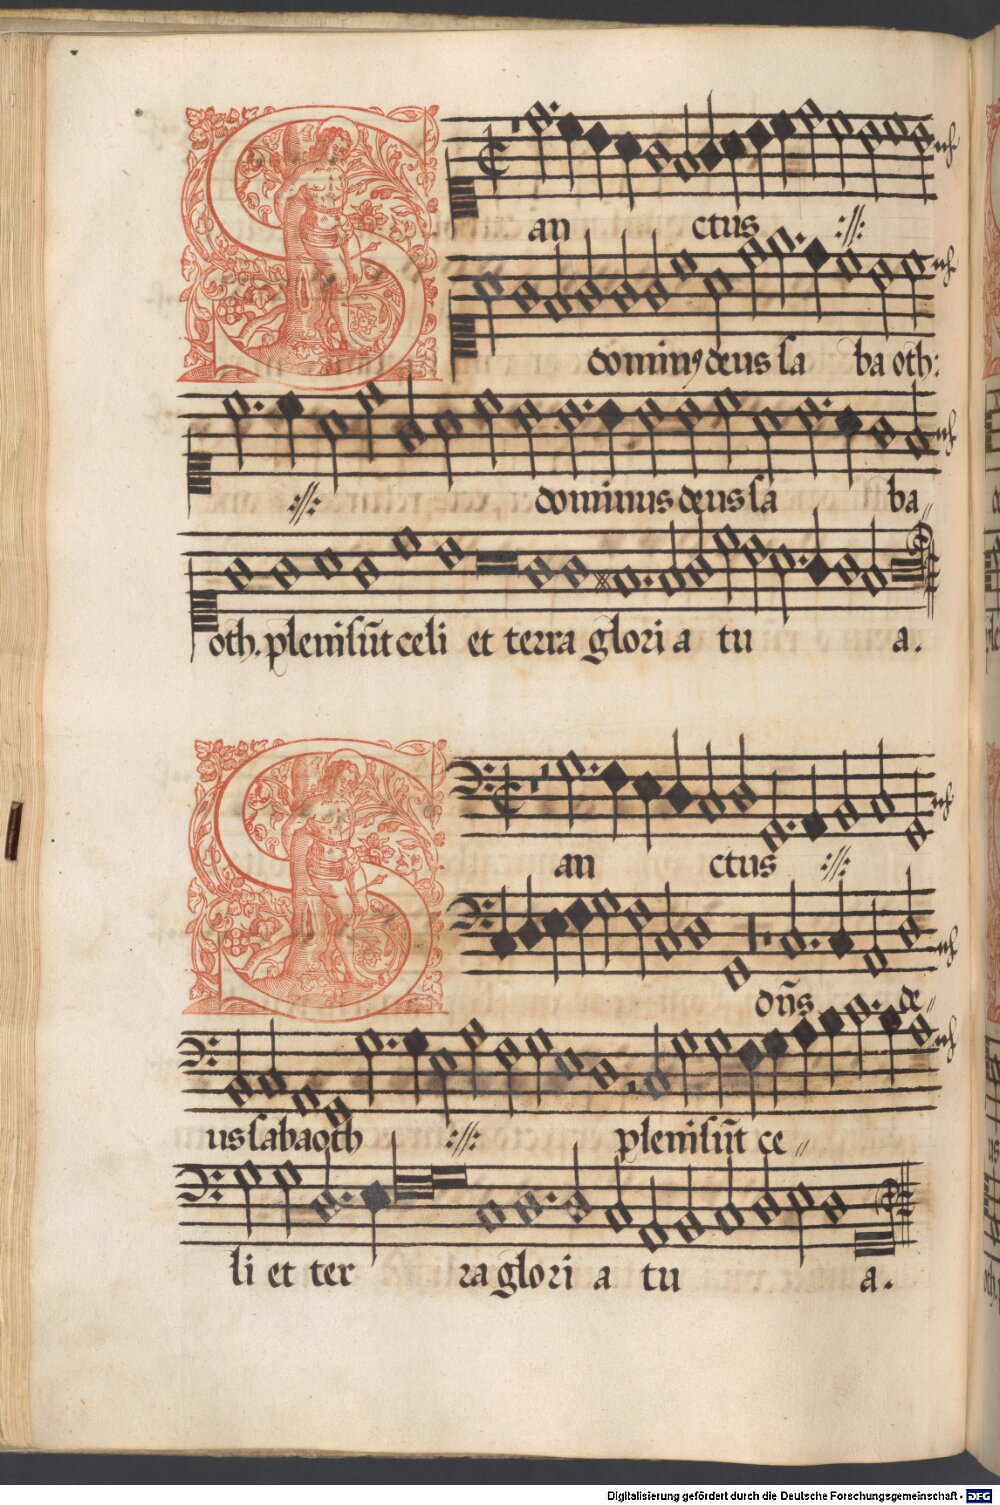 San ctus :||:
dominꝰ deus sa ba oth:
:||: dominus deus sa ba〃
oth. pleni sūt celi et terra glori a tu a.
San ctus :||:
dn̄s de〃
us sabaoth :||: pleni sūt ce〃
li et ter ra glori a tu a.
Digitalisierung gefördert durch die Deutsche Forschungsgemeinschaft - DFG